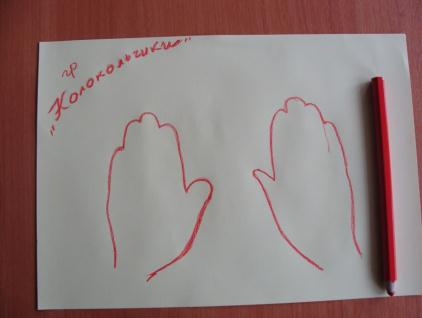 гр
"Колокольчики"